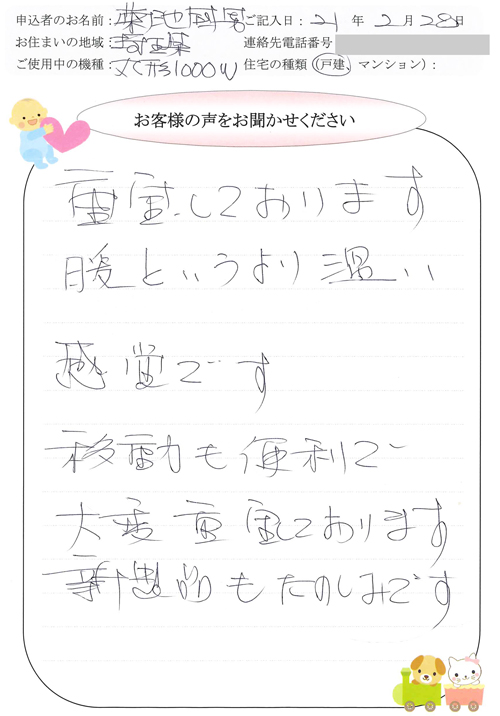 申込者のお名前： 菊池 ご記入日：21年 2月 28日
お住まいの地域：埼玉県 連絡先電話番号
ご使用中の機種：丈形1000W 住宅の種類（戸建、マンション）：
お客様の声をお聞かせください
重宝しております
暖というより温い
感覚です
移動も便利で
大変重宝しております
新製品もたのしみです